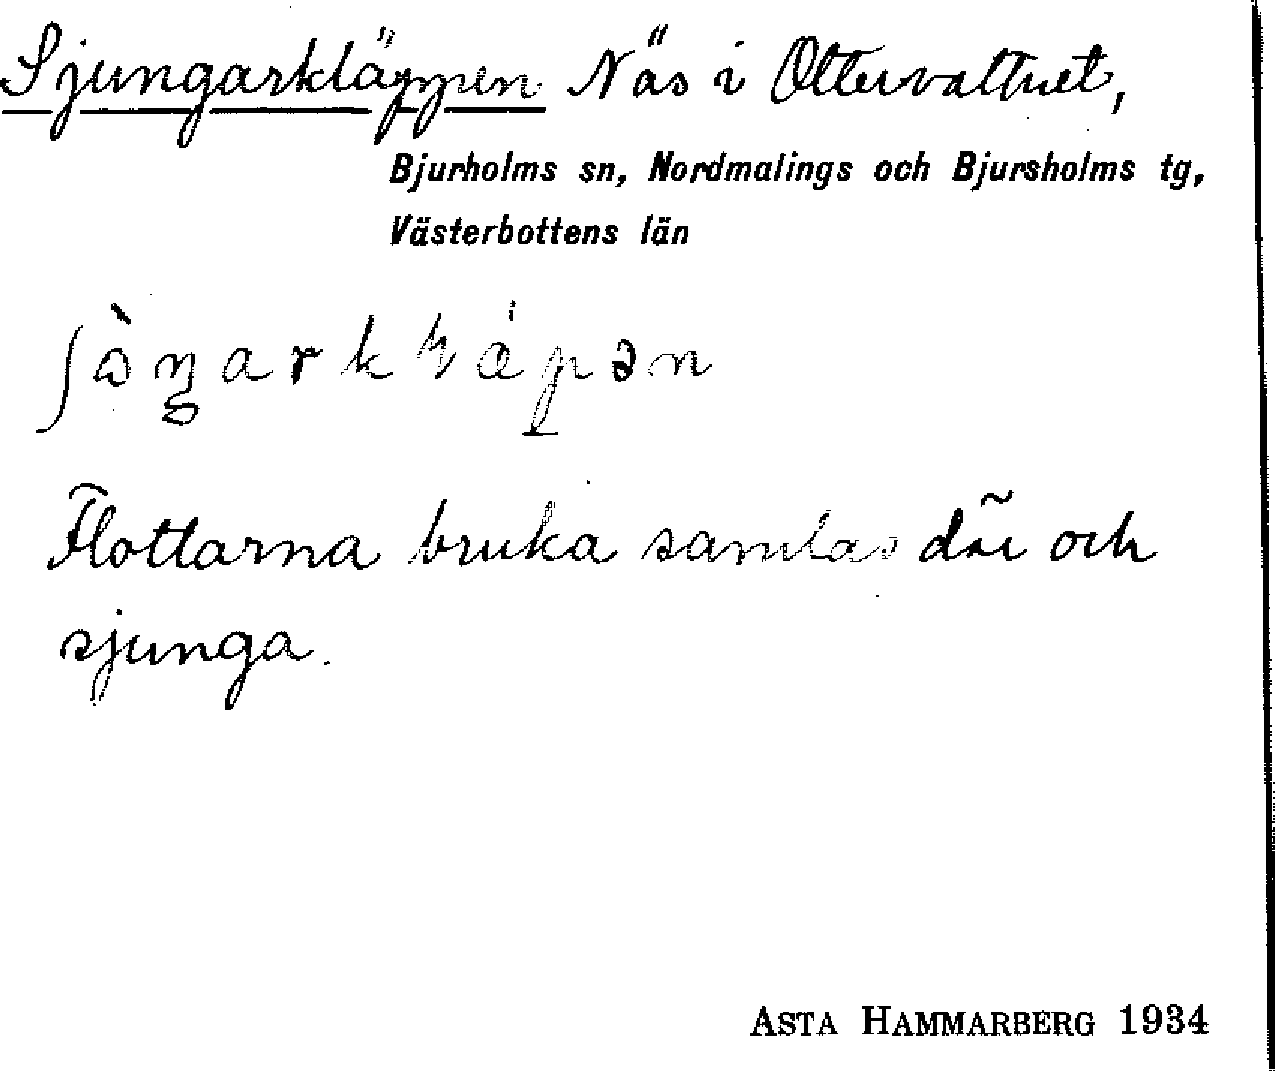 Sjungarkläppen Näs i Ottervattnet,
Bjurholms sn, Nordmalings och Bjursholms tg,
Västerbottens län
Flottarna bruka samlas där och
sjunga.
ASTA HAMMARBERG 1934